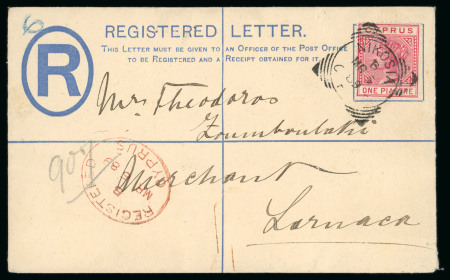 6
REGISTERED LETTER.
THIS LETTER MUST BE GIVEN TO AN OFFICER OF THE POST OFFICE
TO BE REGISTERED AND A RECEIPT OBTAINED FOR IT.
R
CYPRUS
ONE PIASTRE
NIKOSIA
Mrs Theodoros
Zoumboulaki
Merchant
Larnaca
REGISTERED
CYPRUS